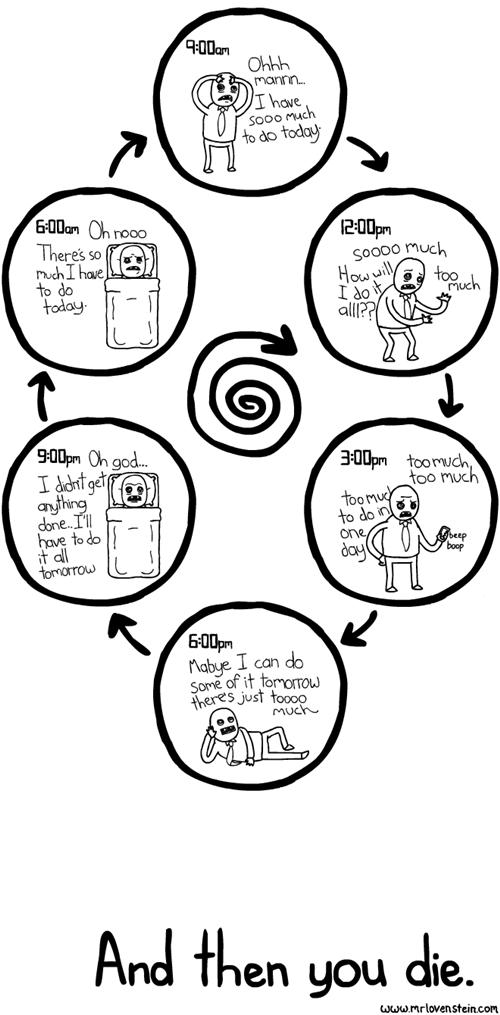 9:00am
Ohhh
mannn...
I have
sooo much
to do today.
12:00pm
soooo much
How will
I do it
alll??
too
much
3:00pm
too much,
too much
too much
to do in
one
day
beep
boop
6:00pm
Mabye I can do
some of it tomorrow
there's just toooo
much
9:00pm
Oh god...
I didn't get
anything
done...I'll
have to do
it all
tomorrow
6:00am
Oh nooo
There's so
much I have
to do
today.
And then you die.
www.mrlovenstein.com